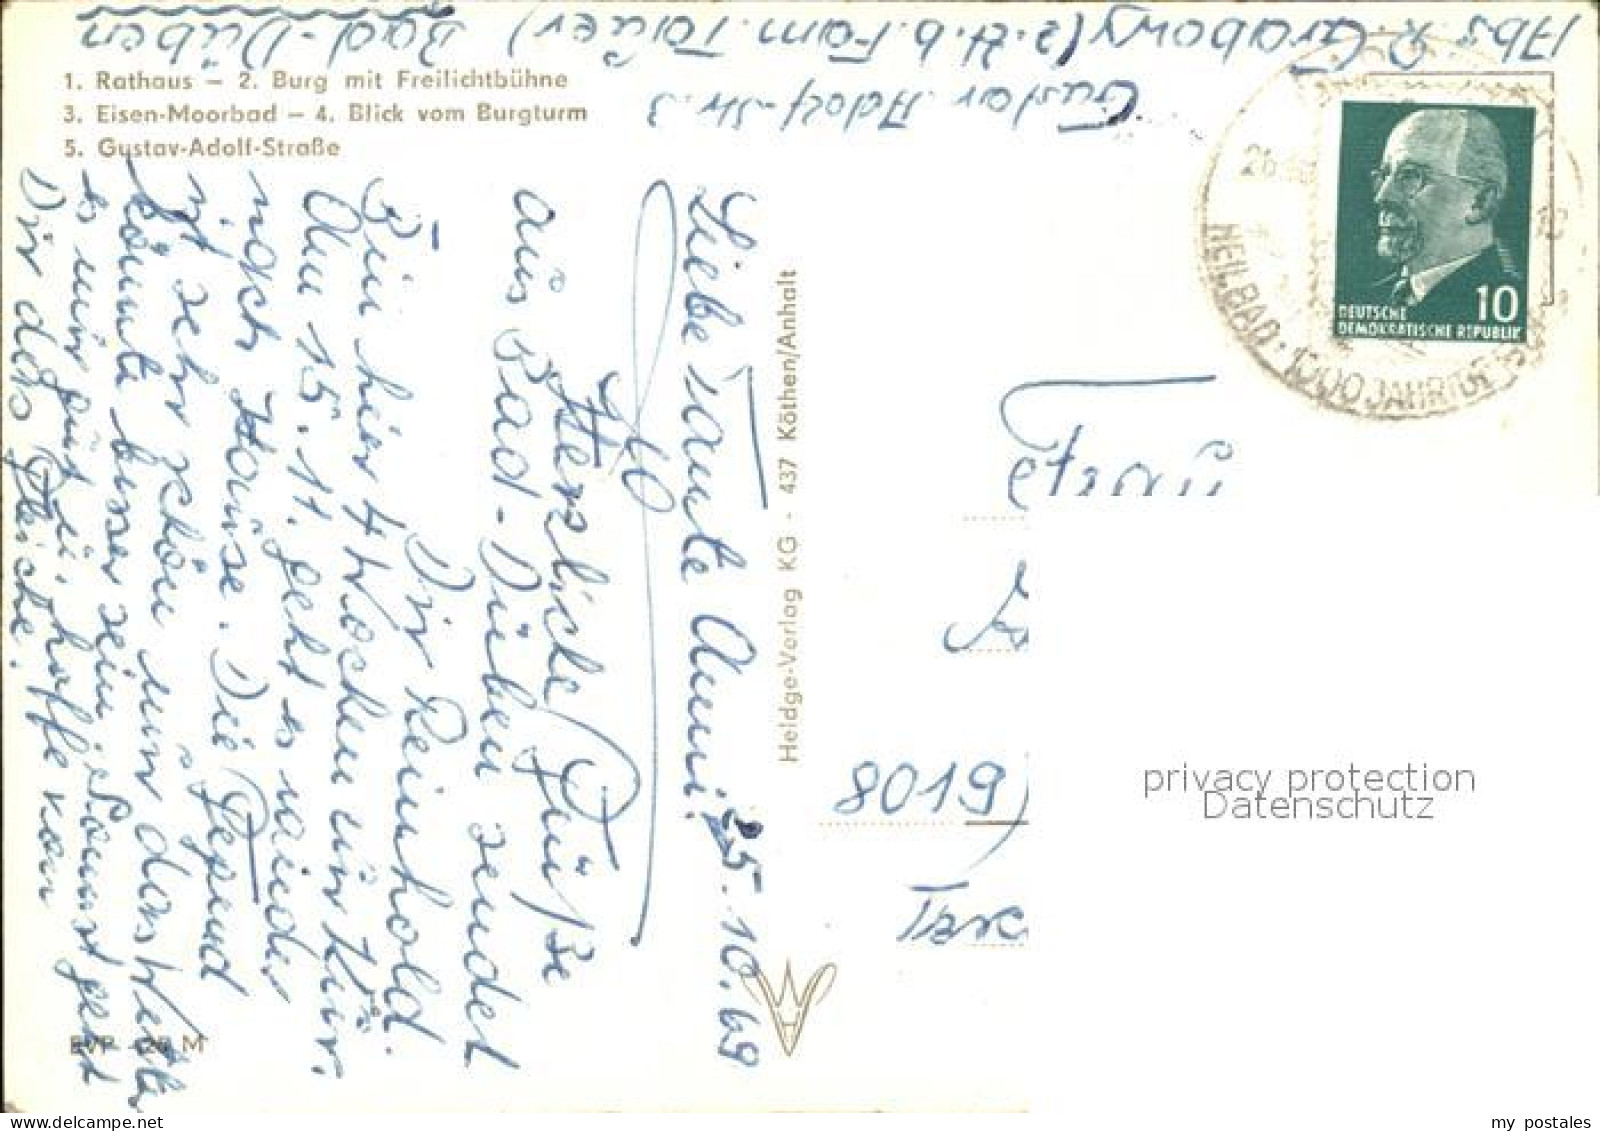 Abs. R. Grabowy (z. Zt. b. Fam. Tauer) Bad-Düben
Gustav-Adolf-Str. 3
1. Rathaus – 2. Burg mit Freilichtbühne
3. Eisen-Moorbad – 4. Blick vom Burgturm
5. Gustav-Adolf-Straße
25.10.69
Liebe Tante Anni!
Herzliche Grüße
aus Bad-Düben sendet
Dir Reinhold.
Bin hier 4 Wochen zur Kur.
Am 15.11. geht es wieder
nach Hause. Die Gegend
ist sehr schön nur das Wetter
könnte besser sein. Sonst geht
es mir gut u. hoffe von
Dir das Gleiche.
EVP M
Heldge-Verlag KG · 437 Köthen/Anhalt
HEILBAD · 1000 JAHR
DEUTSCHE
DEMOKRATISCHE REPUBLIK
10
Frau
8019
privacy protection
Datenschutz
my postales